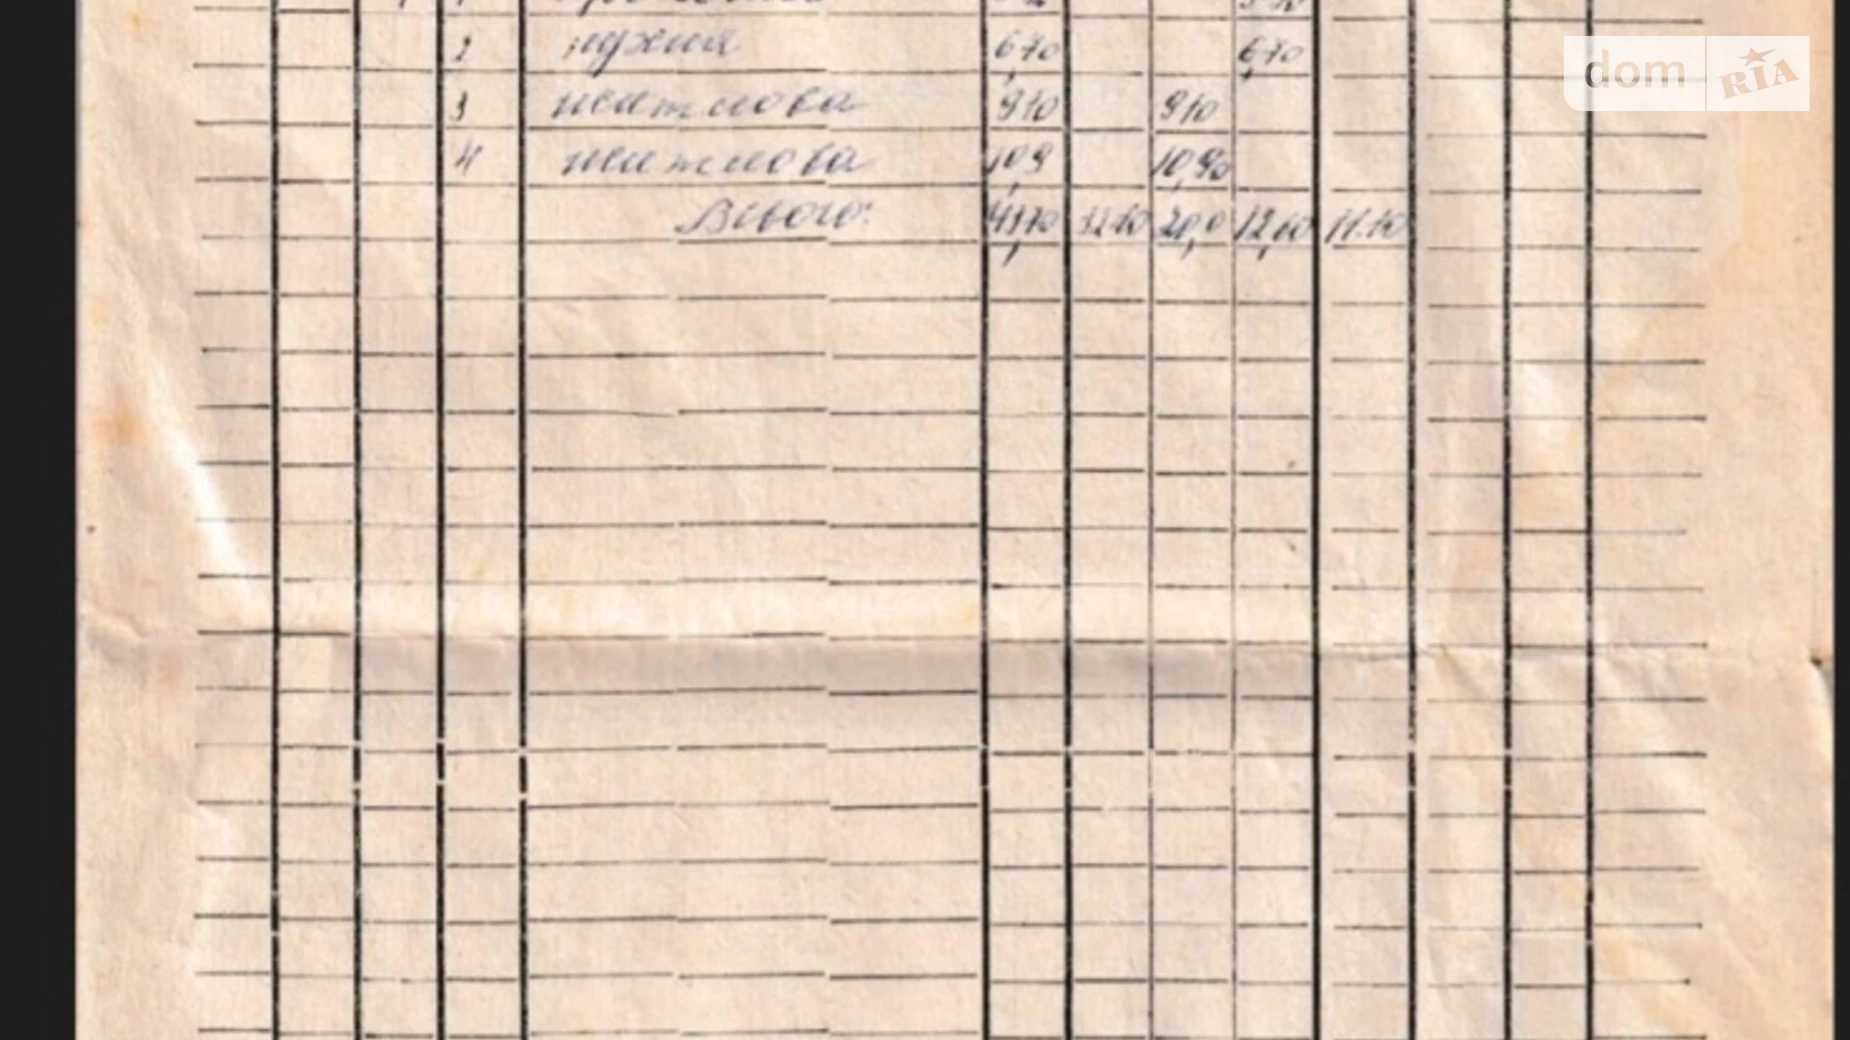 dom RIA
2 кухня 6,70 6,70
3 житлова 9,10 9,10
4 житлова 10,9 10,90
Всього: 43,70 32.60 20,0 12,60 11.10